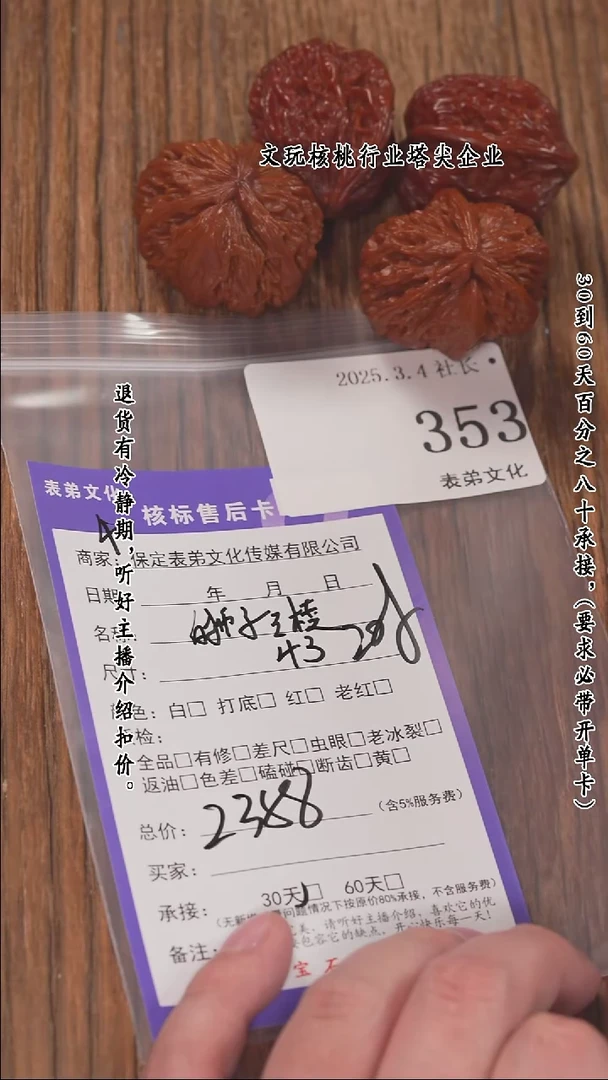 文玩核桃行业塔尖企业
30到60天百分之八十承接，（要求必带开单卡）
退货有冷静期，听好主播介绍扣价。
2025.3.4 社长
353
表弟文化
表弟文化
核标售后卡
商家：保定表弟文化传媒有限公司
日期： 年 月 日
名称： 狮子三棱
尺寸： 43
色：白□ 打底□ 红□ 老红□
检：
全品□有修□差尺□虫眼□老冰裂□
返油□色差□磕碰□断齿□黄□
总价： 2388 （含5%服务费）
买家：
承接： 30天□ 60天□
问题情况下按原价80%承接，不含服务费）
美：请听好主播介绍，喜欢它的优
包容它的缺点，开心快乐每一天！
备注：
宝